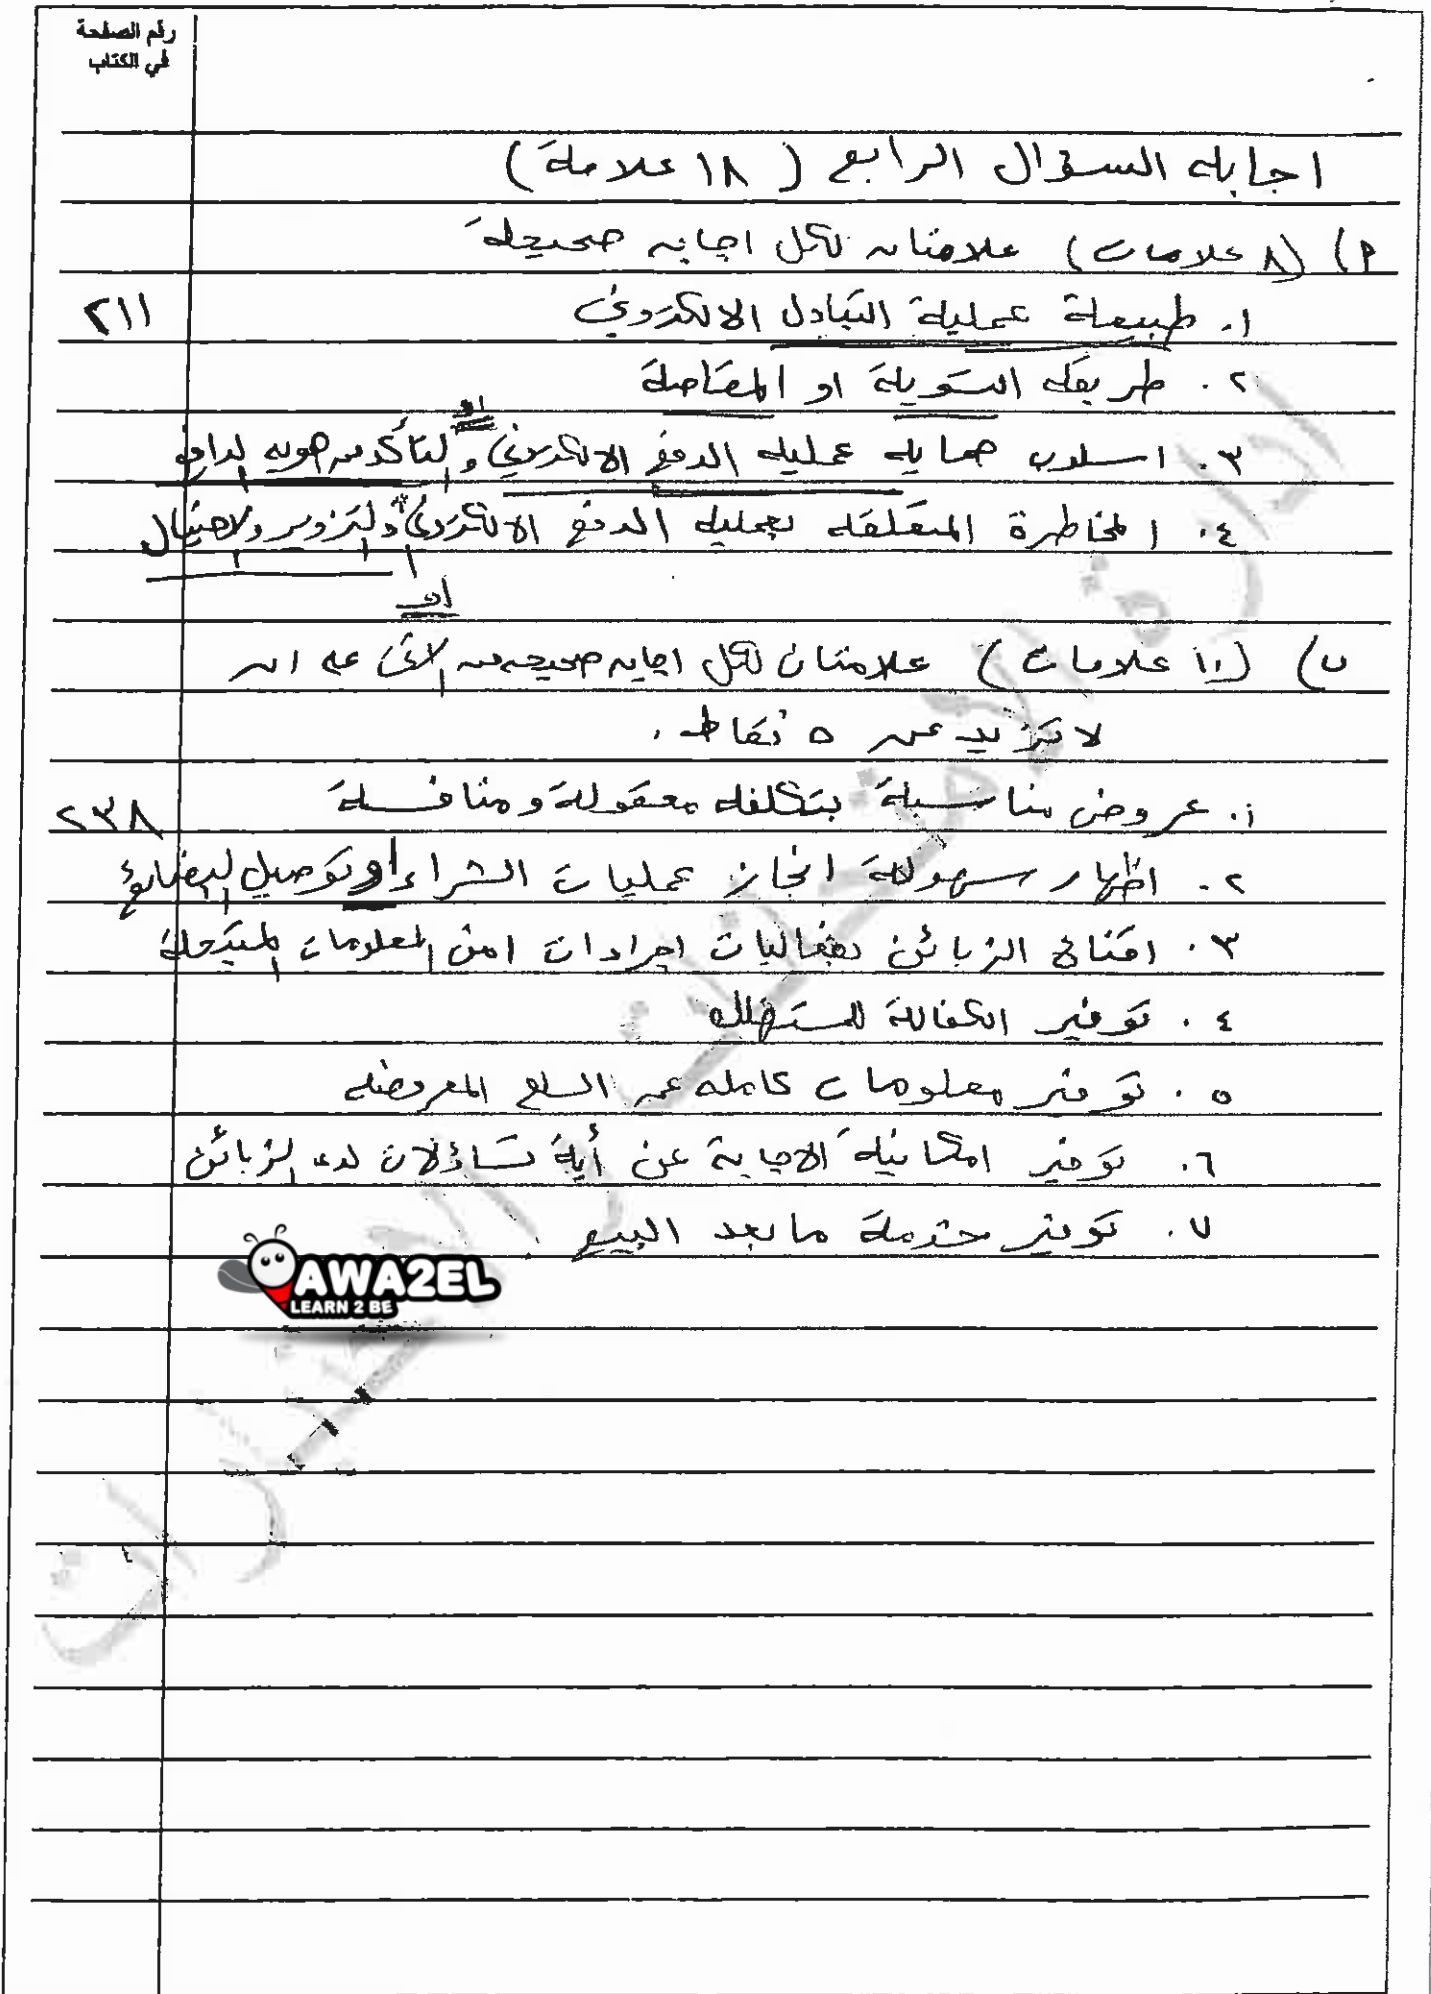 رقم الصفحة
في الكتاب
اجابة السؤال الرابع ( ١٨ علامة )
أ) (٨ علامات) علامتان لكل اجابة صحيحة
١. طبيعة عملية التبادل الالكتروني
٢١١
٢. طريقة التسوية او المقاصة
او
٣. اسلوب حماية عملية الدفع الالكتروني و التأكد من هوية الدافع
٤. المخاطرة المتعلقة بعملية الدفع الالكتروني والتزوير والاحتيال
او
ب) (١٠ علامات) علامتان لكل اجابة صحيحة من الاتي على ان
لا تزيد عن ٥ نقاط .
١. عروض مناسبة بتكلفة معقولة ومنافسة
٢٣٨
٢. اظهار سهولة انجاز عمليات الشراء او توصيل البضائع
٣. اقناع الزبائن بفعاليات اجراءات امن المعلومات
٤. توفير الكفالة للمستهلك
٥. توفير معلومات كاملة عن السلع المعروضة
٦. توفير امكانية الاجابة عن أية تساؤلات لدى الزبائن
٧. توفير خدمة ما بعد البيع .
AWA2EL
LEARN 2 BE
ادارة الامتحانات والاختبارات